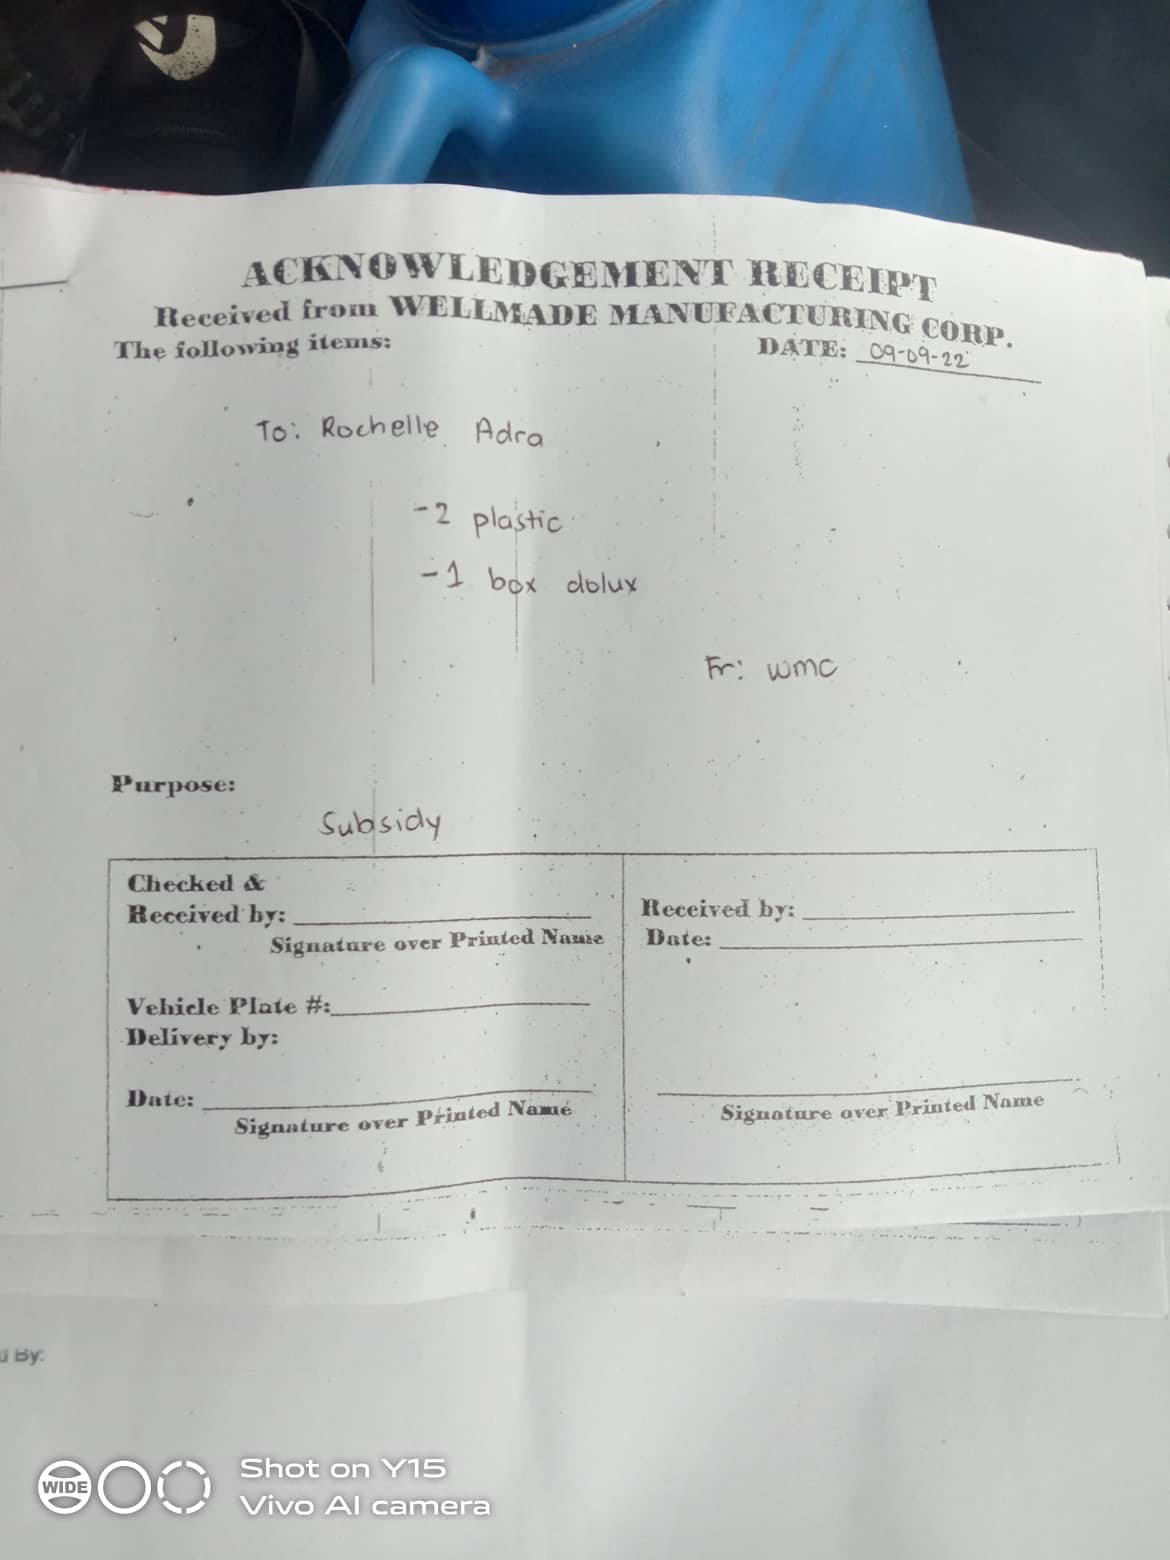 ACKNOWLEDGEMENT RECEIPT
Received from WELLMADE MANUFACTURING CORP.
The following items:
DATE: 09-09-22
To: Rochelle Adra
-2 plastic
-1 box dolux
Fr: wmc
Purpose:
Subsidy
Checked &
Received by:
Signature over Printed Name
Vehicle Plate #:
Delivery by:
Date:
Signature over Printed Name
Received by:
Date:
Signature over Printed Name
By:
WIDE
Shot on Y15
Vivo AI camera